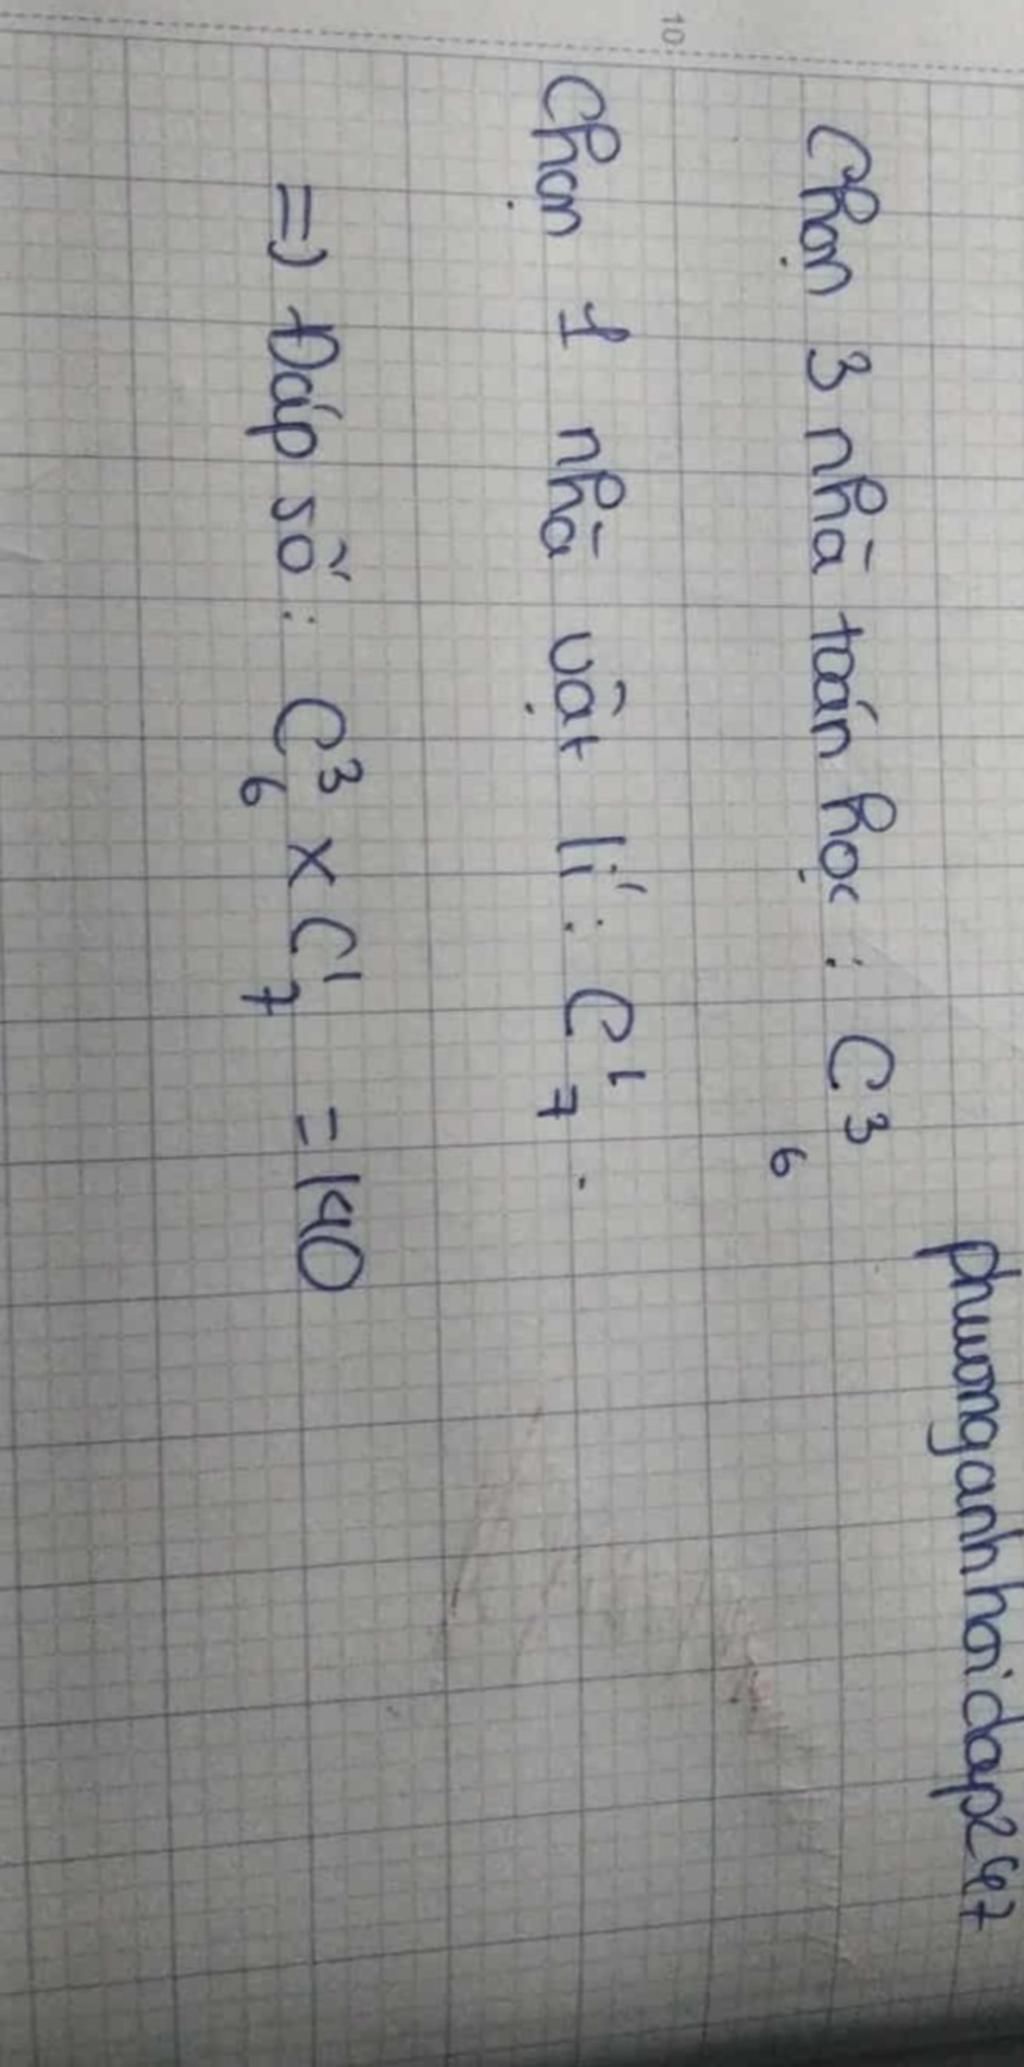 phuonganhhoidap247
Chọn 3 nhà toán học : C³₆
Chọn 1 nhà vật lí : C¹₇ .
=) Đáp số : C³₆ x C¹₇ = 140
10